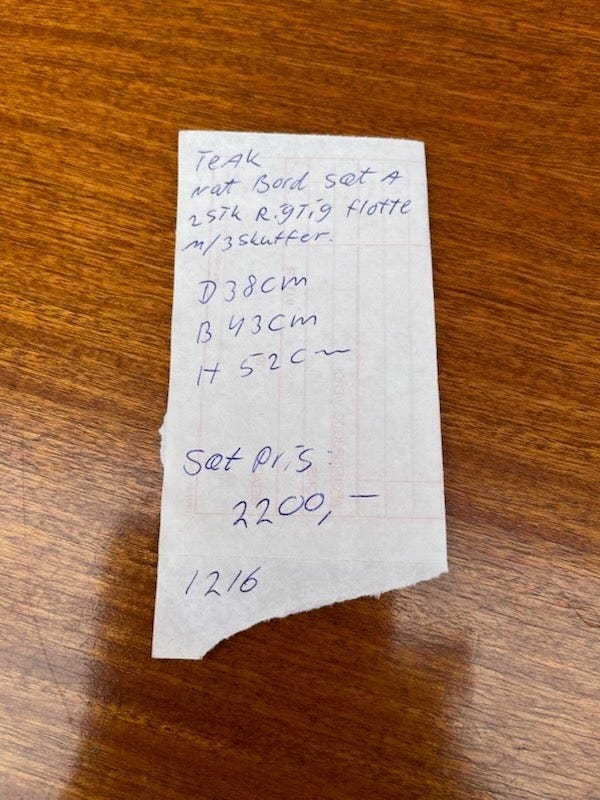 TeAK
Nat Bord Sæt A
2 STK RigTig flotte
m/3 skuffer.
D 38 cm
B 43 cm
H 52 cm
Sæt Pris:
2200,—
1216